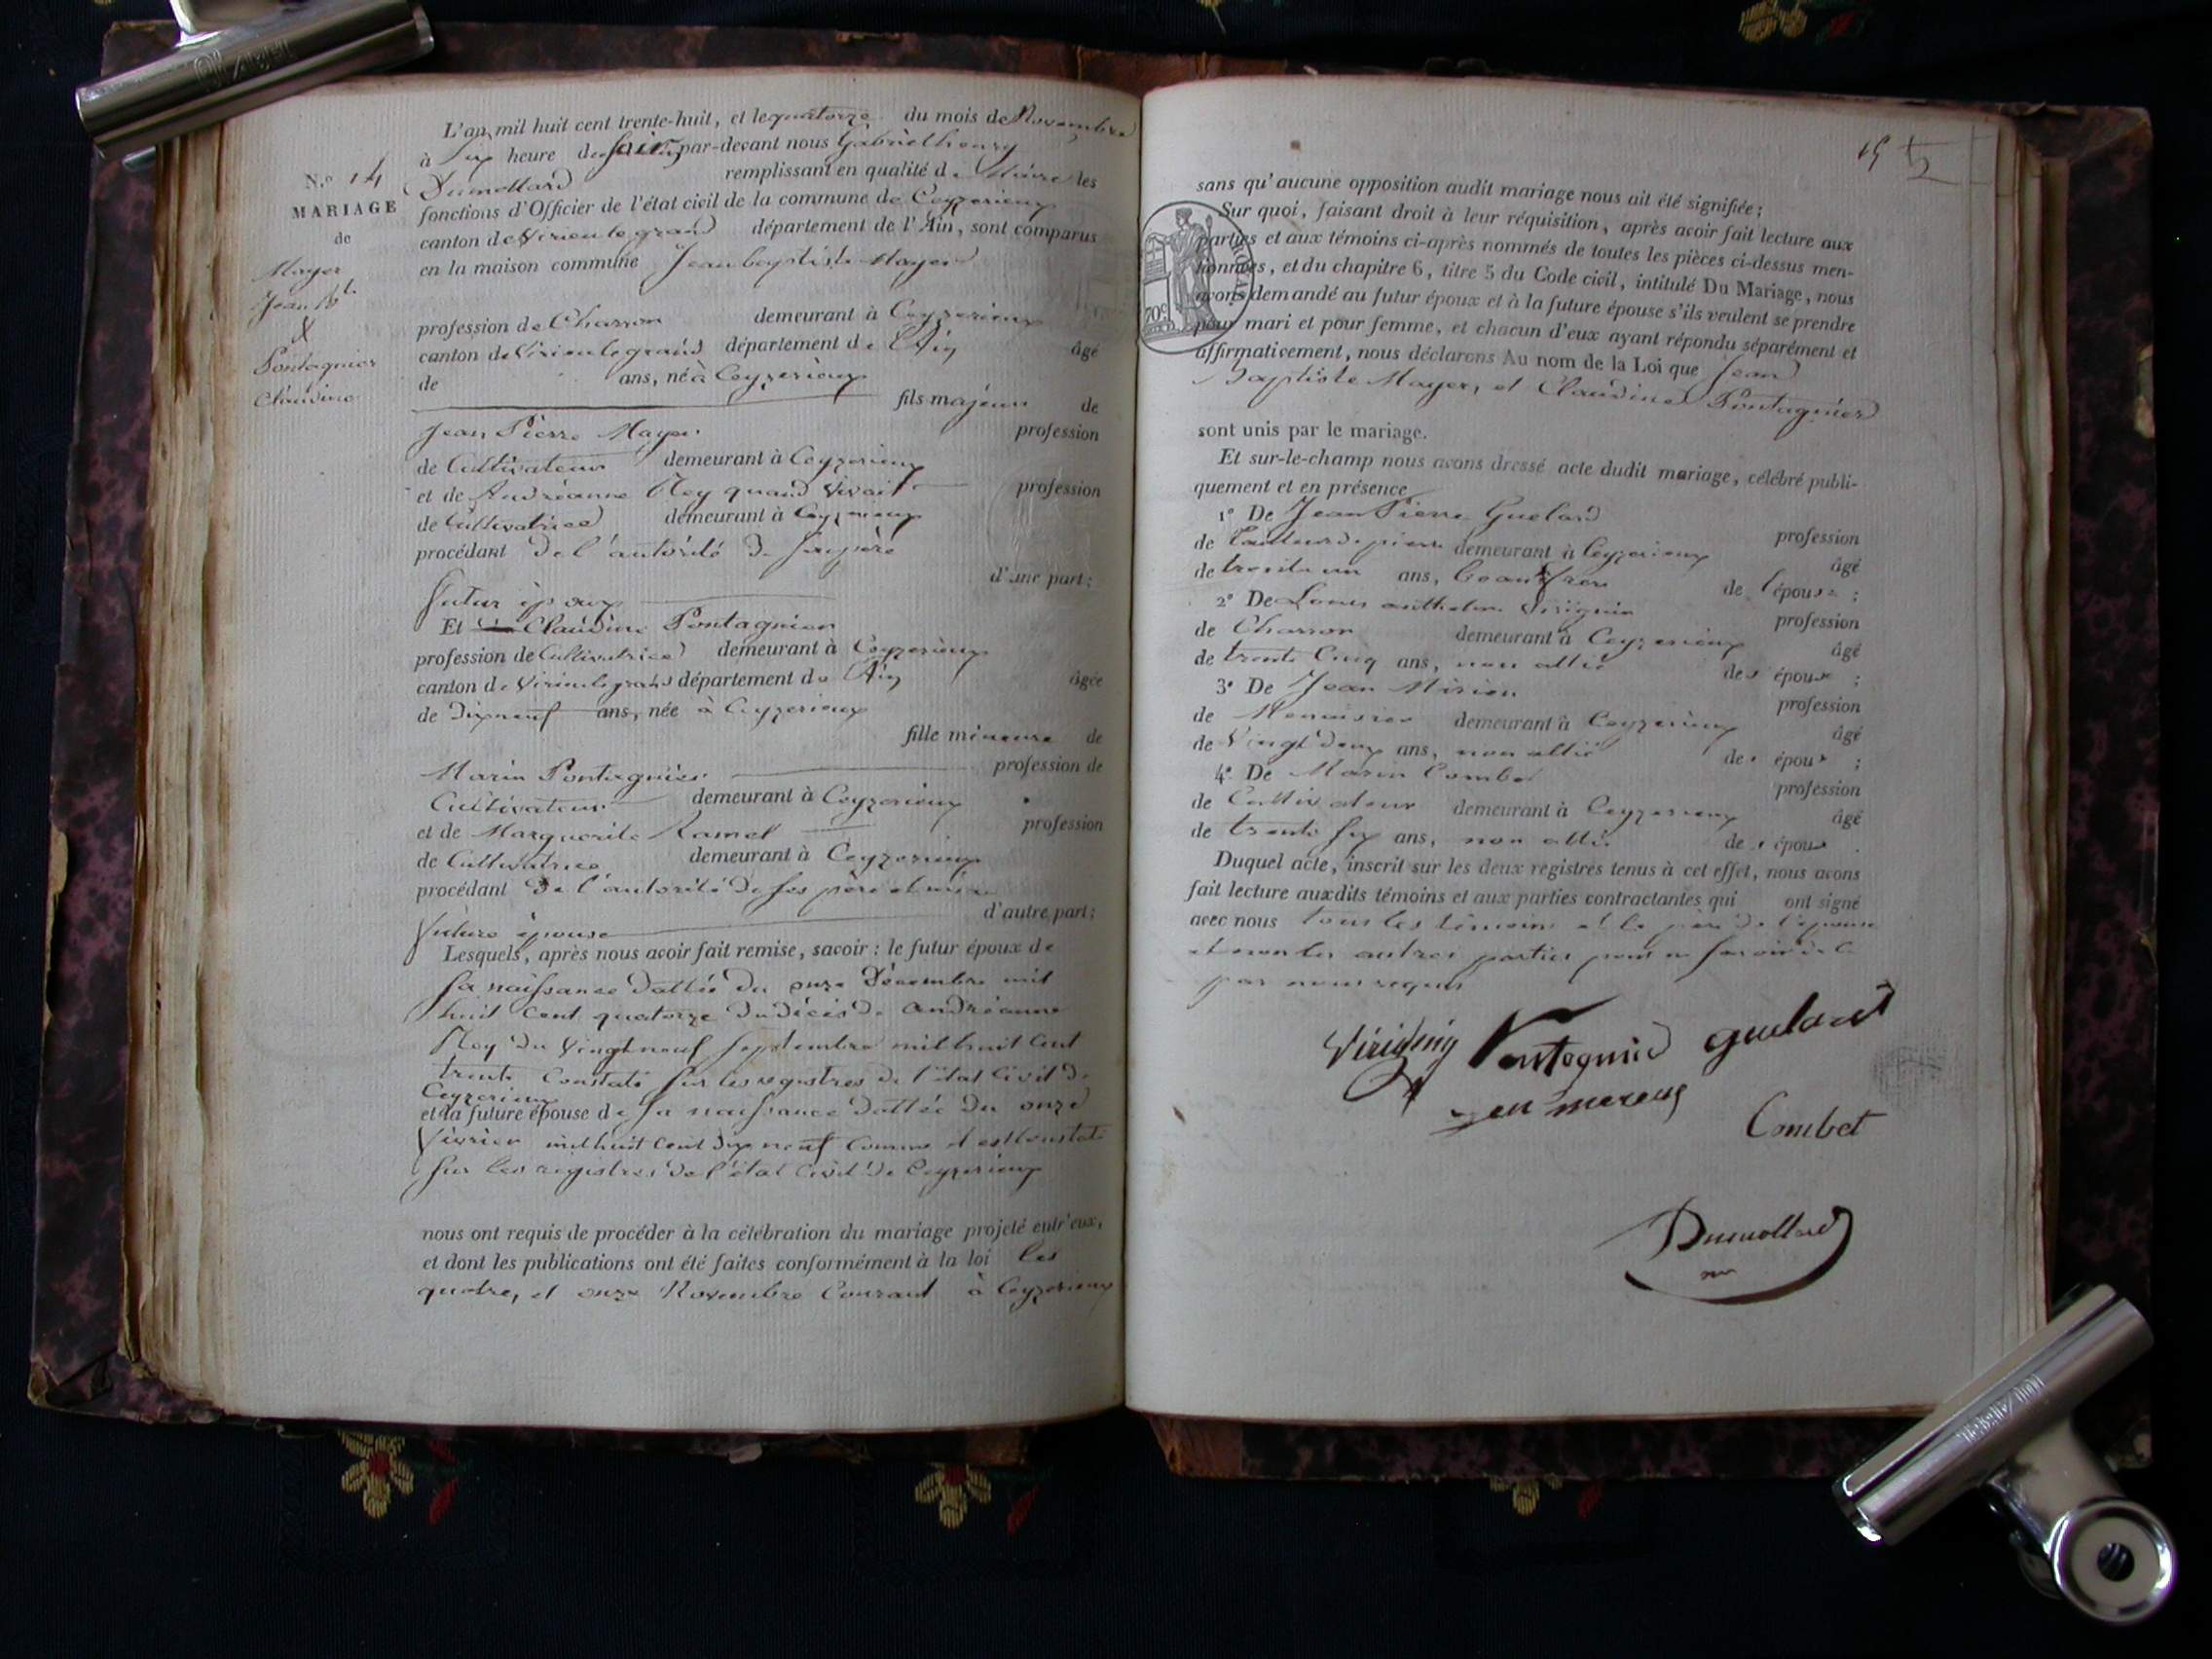 L'an mil huit cent trente-huit, et le quatorze du mois de Novembre
à Six heure du Soir par-devant nous Gabriel henry
Dumollard remplissant en qualité de Maire les
fonctions d'Officier de l'état civil de la commune de Ceyzerieux
canton de Virieu le grand département de l'Ain, sont comparus
en la maison commune Jean baptiste Mayer
N.º 14
MARIAGE
de
Mayer
Jean Bt.
&
Pontagnier
Claudine
profession de Charron demeurant à Ceyzerieux
canton de Virieu le grand département de l'Ain âgé
de ans, né à Ceyzerieux
fils majeur de
Jean Pierre Mayer profession
de Cultivateur demeurant à Ceyzerieux
et de Andréanne Rey quand vivait profession
de Cultivatrice demeurant à Ceyzerieux
procédant de l'autorité de Son père
d'une part;
futur époux
Et Claudine Pontagnier
profession de Cultivatrice demeurant à Ceyzerieux
canton de Virieu le grand département de l'Ain âgée
de Dix neuf ans, née à Ceyzerieux
fille mineure de
Marin Pontagnier profession de
Cultivateur demeurant à Ceyzerieux
et de Marguerite Ramel profession
de Cultivatrice demeurant à Ceyzerieux
procédant de l'autorité de Ses père et mère
d'autre part;
future épouse
Lesquels, après nous avoir fait remise, savoir: le futur époux de
Sa naissance dattée du onze Décembre mil
huit Cent quatorze du décès de Andréanne
Rey du Vingt neuf Septembre mil huit Cent
trente Constaté Sur les registres de l'état Civil de
Ceyzerieux
et la future épouse de Sa naissance dattée du onze
février mil huit cent dix neuf Comme il est Constaté
Sur les registres de l'état Civil de Ceyzerieux
nous ont requis de procéder à la célébration du mariage projeté entr'eux,
et dont les publications ont été faites conformément à la loi les
quatre, et onze Novembre Courant à Ceyzerieux
15
sans qu'aucune opposition audit mariage nous ait été signifiée;
Sur quoi, faisant droit à leur réquisition, après avoir fait lecture aux
parties et aux témoins ci-après nommés de toutes les pièces ci-dessus men-
tionnées, et du chapitre 6, titre 5 du Code civil, intitulé Du Mariage, nous
avons demandé au futur époux et à la future épouse s'ils veulent se prendre
pour mari et pour femme, et chacun d'eux ayant répondu séparément et
affirmativement, nous déclarons Au nom de la Loi que Jean
Baptiste Mayer, et Claudine Pontagnier
70c
sont unis par le mariage.
Et sur-le-champ nous avons dressé acte dudit mariage, célébré publi-
quement et en présence
1º De Jean Pierre Guelard profession
de tailleur de pierre demeurant à Ceyzerieux âgé
de trente un ans, beau frère de l'épouse;
2º De Louis anthelme Virignin profession
de Charron demeurant à Ceyzerieux âgé
de trente Cinq ans, non allié des époux;
3º De Jean profession
de Menuisier demeurant à Ceyzerieux âgé
de Vingt deux ans, non allié des époux;
4º De Marin Combet profession
de Cultivateur demeurant à Ceyzerieux âgé
de trente Six ans, non allié des époux.
Duquel acte, inscrit sur les deux registres tenus à cet effet, nous avons
fait lecture auxdits témoins et aux parties contractantes qui ont signé
avec nous tous les témoins et le père de l'épouse
et non les autres parties pour ne Savoir de ce
par nous requis
Virignin Pontagnier guelard
Combet
Dumollard